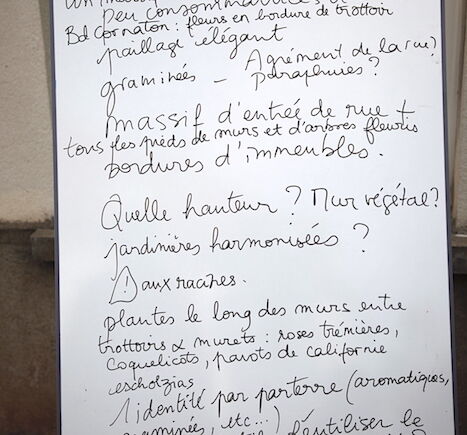 Peu consommatrices
Bd Cornaton : fleurs en bordure de trottoir
paillage élégant
graminées - Agrément de la rue?
paraphuies ?
massif d'entrée de rue +
tous les pieds de murs et d'arbres fleuris
bordures d'immeubles.
Quelle hauteur ? Mur végétal?
jardinières harmonisées ?
! aux racines.
plantes le long des murs entre
trottoirs & murets : roses trémières,
coquelicots, pavots de californie
escholzias
1 identité par parterre (aromatiques,
graminée, etc...)
d'utiliser le